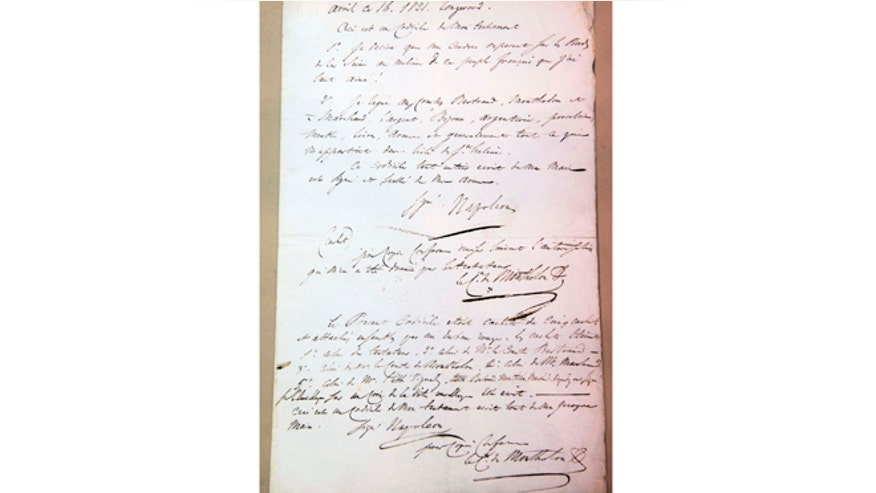 avril ce 16. 1821. Longwood.
Ceci est un Codicile de Mon testament
1°. Je desire que mes Cendres reposent sur les Bords
de la Seine au milieu de ce peuple français que j'ai
tant aimé.
2°. Je legue aux Comtes Bertrand, Montholon et
à Marchand l'argent, Bijoux, argenterie, porcelaine,
Meuble, livres, armes et generalement tout ce que
m'appartient dans l'isle de Ste. Helene.
Ce Codicile tout entier ecrit de Ma Main
est signé et scellé de Mes armes.
Signé Napoleon
Cachet
pour Copie Conforme
qui m'en a été donnée par le testateur
le Ct. de Montholon
Le Present Codicile etoit cacheté de Cinq cachets
et attaché, un ruban rouge, les cachets
1°. celui du testateur, 2°. celui de Mr. le Comte Bertrand
3°. celui de le Comte de Montholon, 4°. celui de Mr. Marchand
5°. celui de Mr. l'abbé Vignaly,
sur un Coin de la est ecrit.
Ceci est un Codicile de Mon testament ecrit tout de Ma propre
Main. Signé Napoleon
pour Copie Conforme
le Ct. de Montholon